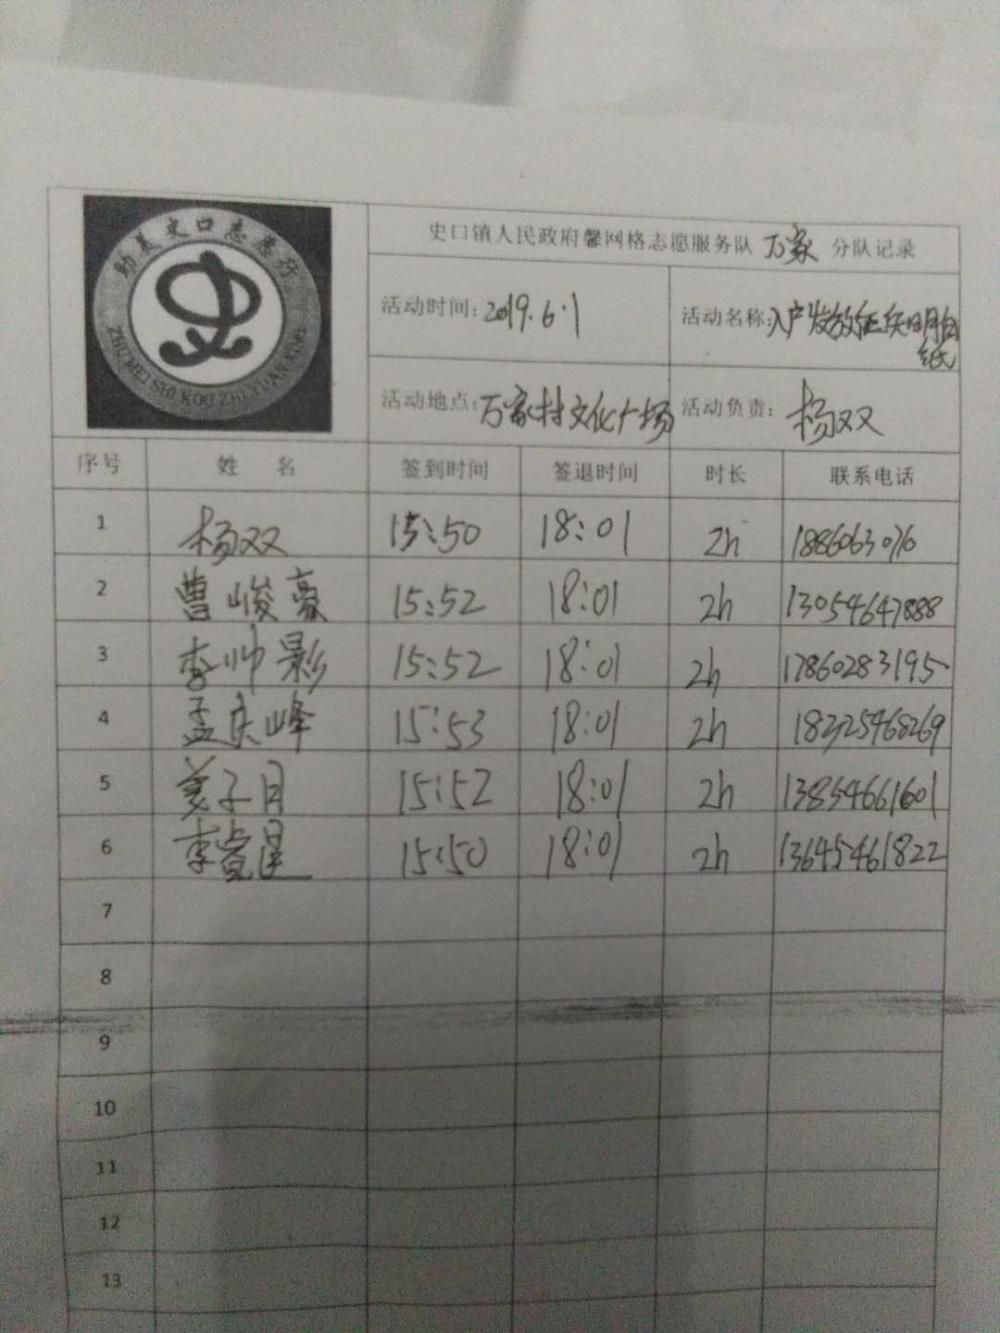 助美史口志愿行
ZHU MEI SHI KOU ZHI YUAN XING
史口镇人民政府馨网格志愿服务队 万家 分队记录
活动时间: 2019.6.1 活动名称: 入户发放
纸
活动地点: 万家村文化广场 活动负责: 杨双双
序号 姓 名 签到时间 签退时间 时长 联系电话
1 杨双双 15:50 18:01 2h
2 曹峻豪 15:52 18:01 2h 13054647888
3 李帅影 15:52 18:01 2h 17860283195
4 孟庆峰 15:53 18:01 2h 18325468269
5 姜子月 15:52 18:01 2h 13854661601
6 李 15:50 18:01 2h 13645461822
7
8
9
10
11
12
13